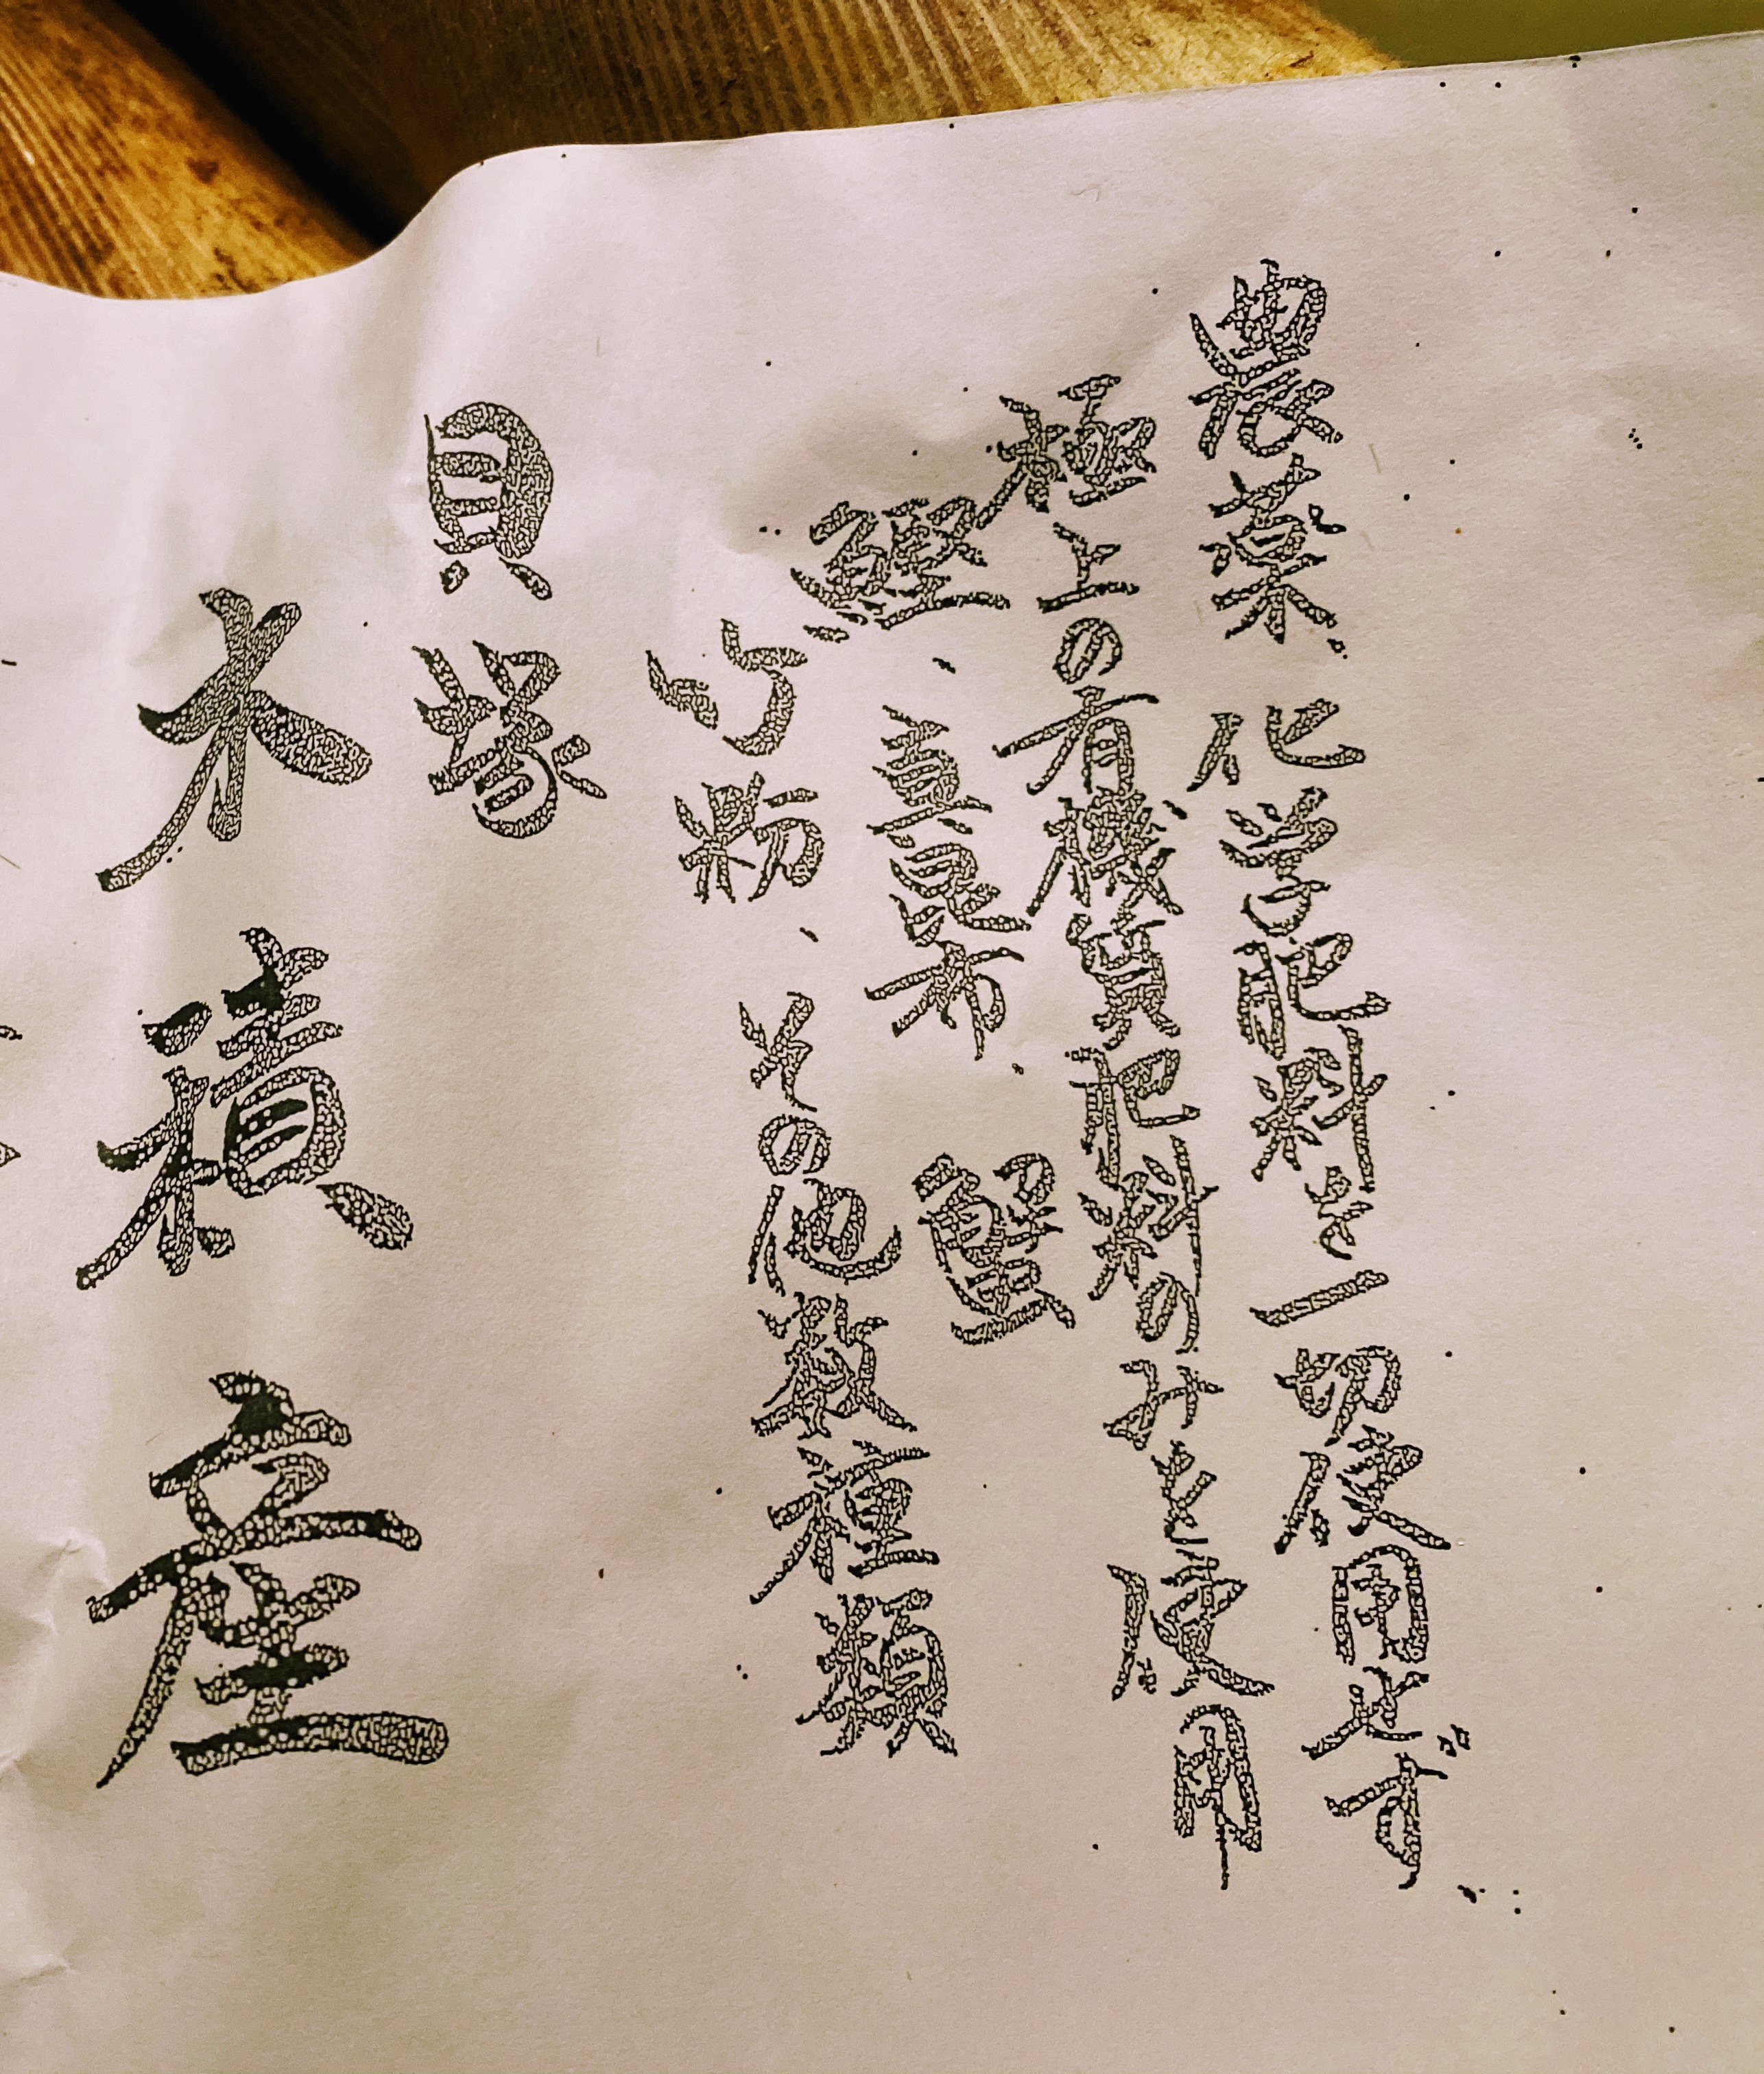 農薬 化学肥料を一切使用せず
極上の有機質肥料のみを使用
鰹、真昆布 蟹
粉、その他数種類
貝塚
木積産